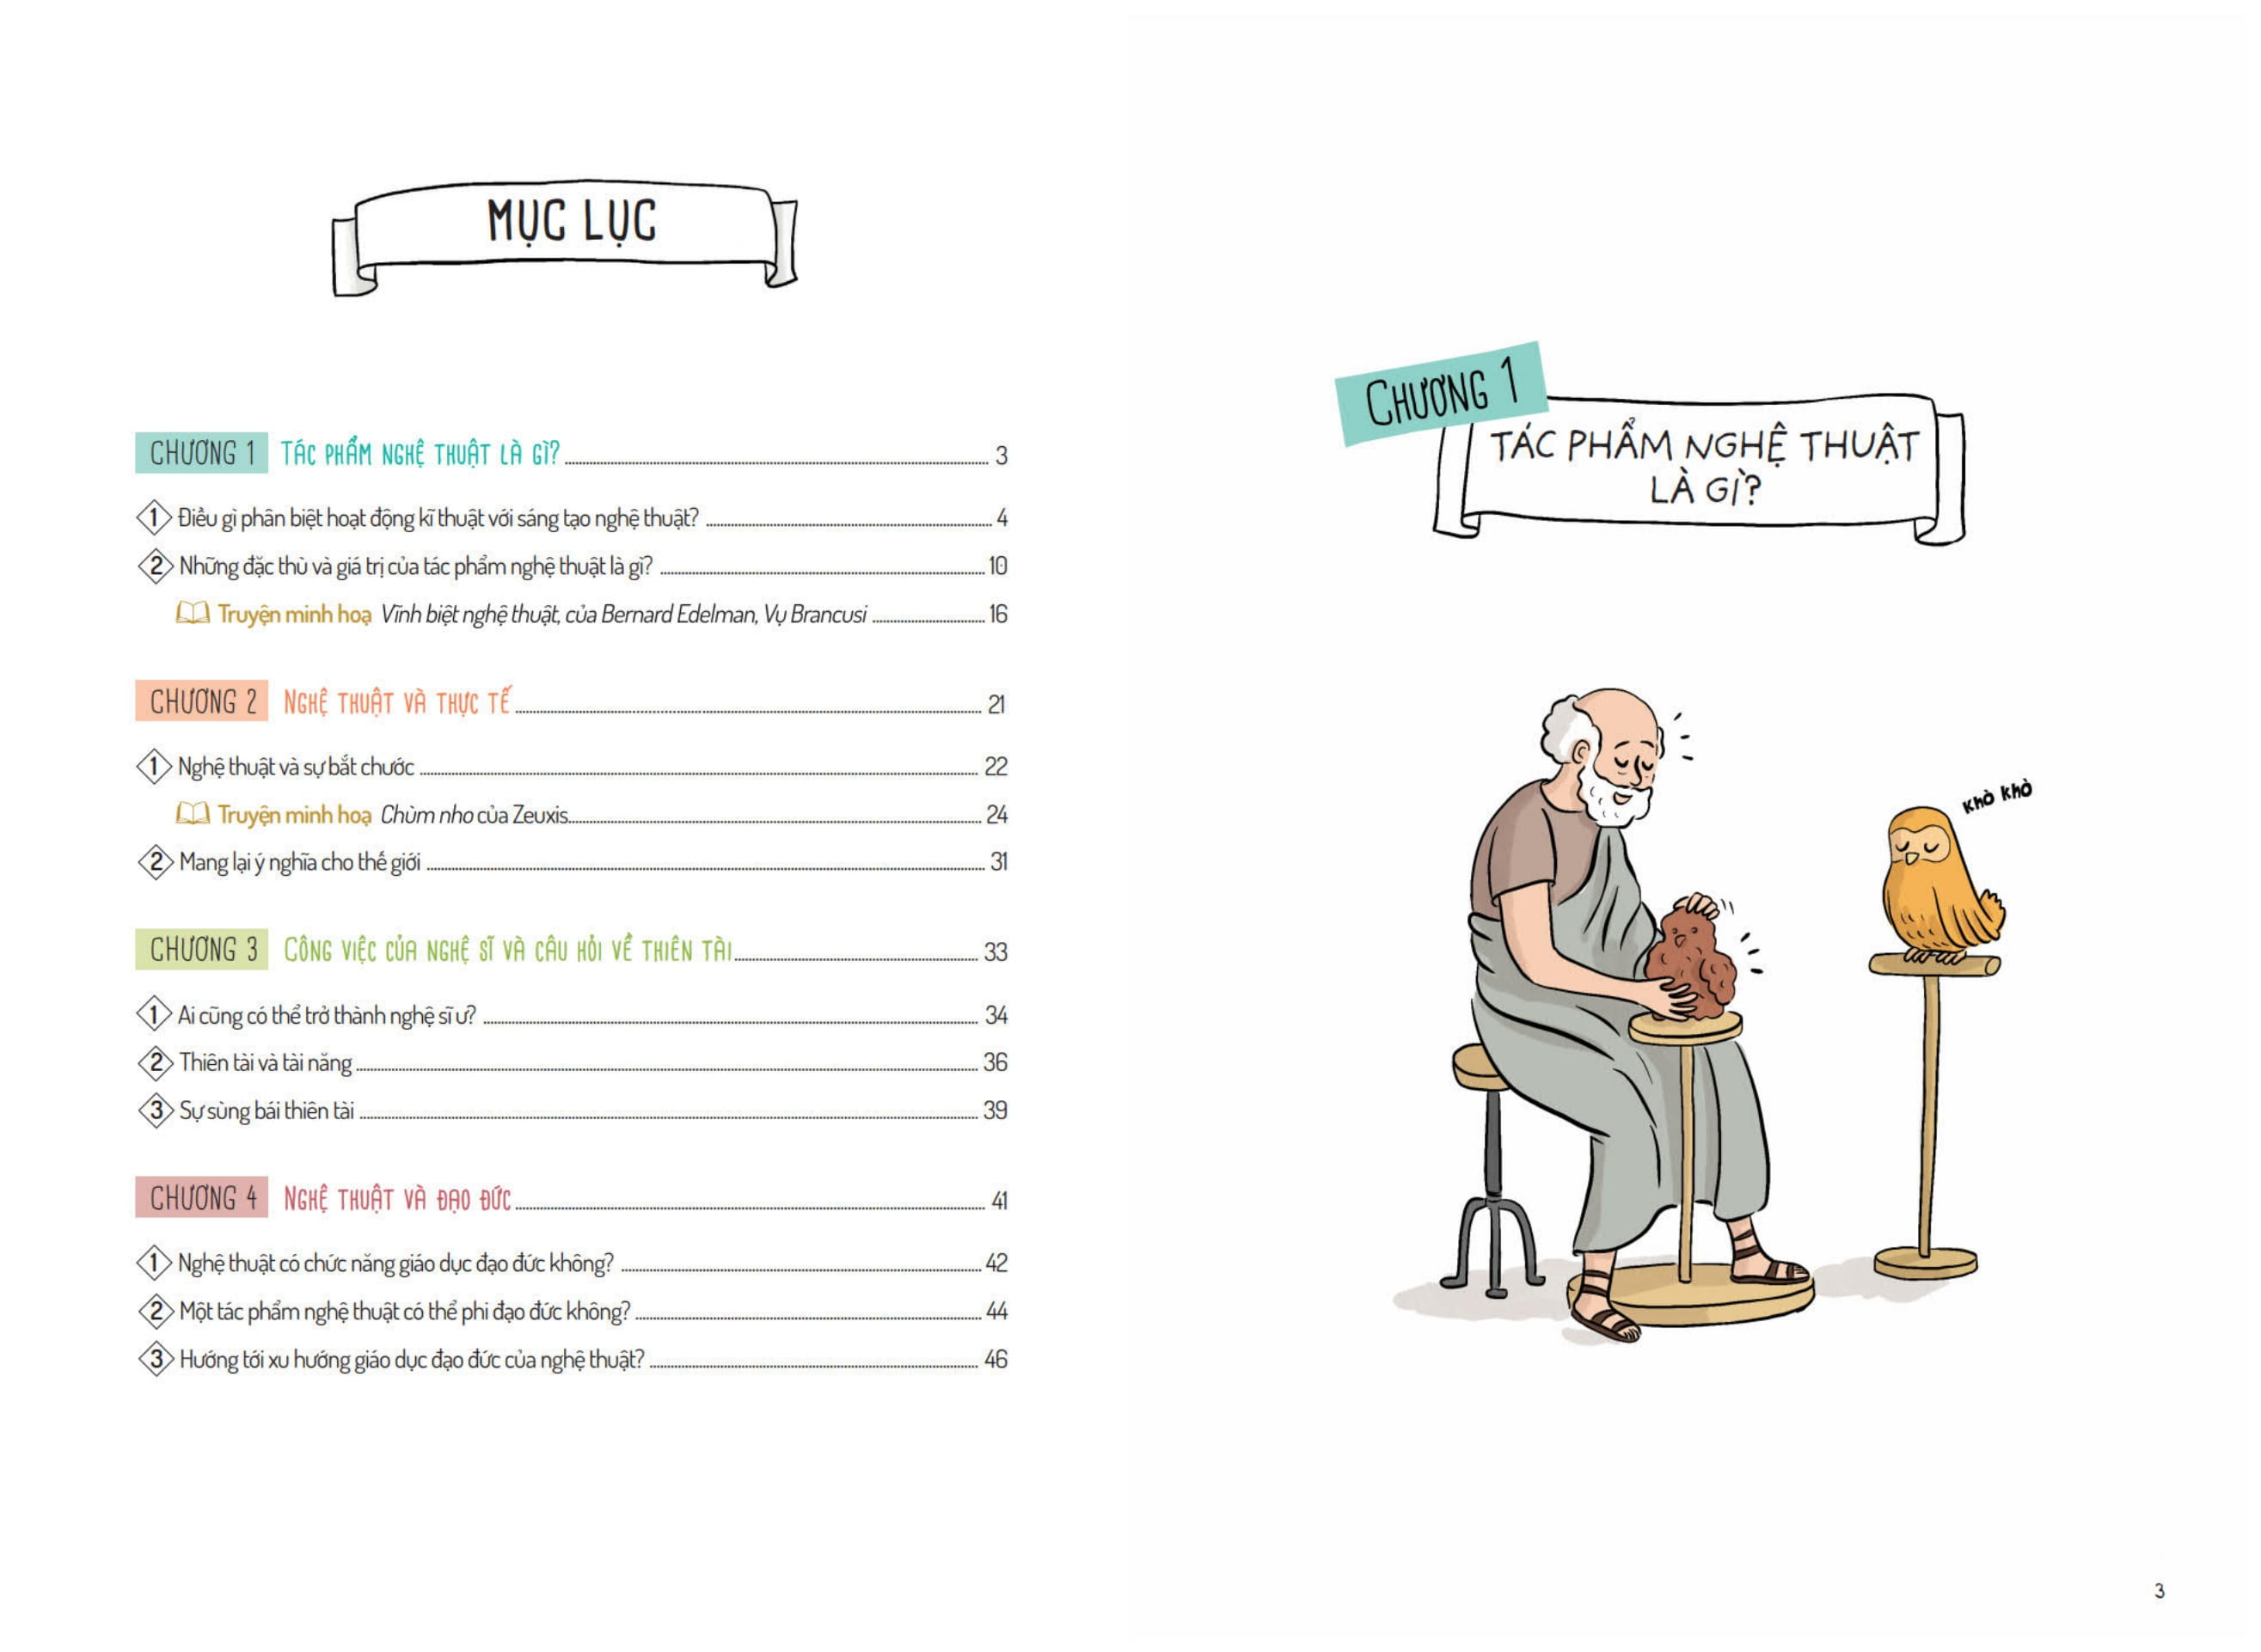 MỤC LỤC
CHƯƠNG 1 TÁC PHẨM NGHỆ THUẬT LÀ GÌ? 3
1 Điều gì phân biệt hoạt động kĩ thuật với sáng tạo nghệ thuật? 4
2 Những đặc thù và giá trị của tác phẩm nghệ thuật là gì? 10
Truyện minh hoạ Vĩnh biệt nghệ thuật, của Bernard Edelman, Vụ Brancusi 16
CHƯƠNG 2 NGHỆ THUẬT VÀ THỰC TẾ 21
1 Nghệ thuật và sự bắt chước 22
Truyện minh hoạ Chùm nho của Zeuxis 24
2 Mang lại ý nghĩa cho thế giới 31
CHƯƠNG 3 CÔNG VIỆC CỦA NGHỆ SĨ VÀ CÂU HỎI VỀ THIÊN TÀI 33
1 Ai cũng có thể trở thành nghệ sĩ ư? 34
2 Thiên tài và tài năng 36
3 Sự sùng bái thiên tài 39
CHƯƠNG 4 NGHỆ THUẬT VÀ ĐẠO ĐỨC 41
1 Nghệ thuật có chức năng giáo dục đạo đức không? 42
2 Một tác phẩm nghệ thuật có thể phi đạo đức không? 44
3 Hướng tới xu hướng giáo dục đạo đức của nghệ thuật? 46
CHƯƠNG 1
TÁC PHẨM NGHỆ THUẬT
LÀ GÌ?
Khò khò
3